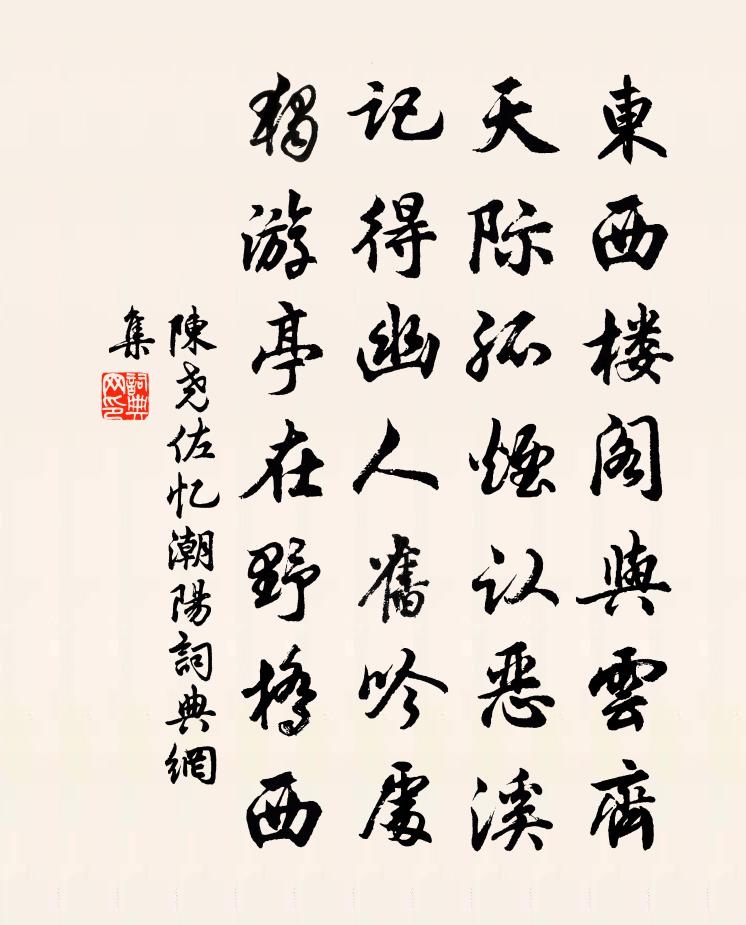 東西楼阁與雲齊
天际孤煙认恶溪
記得幽人舊吟處
獨游亭在野橋西
陳尧佐忆潮陽詞典網
集
詞典網印